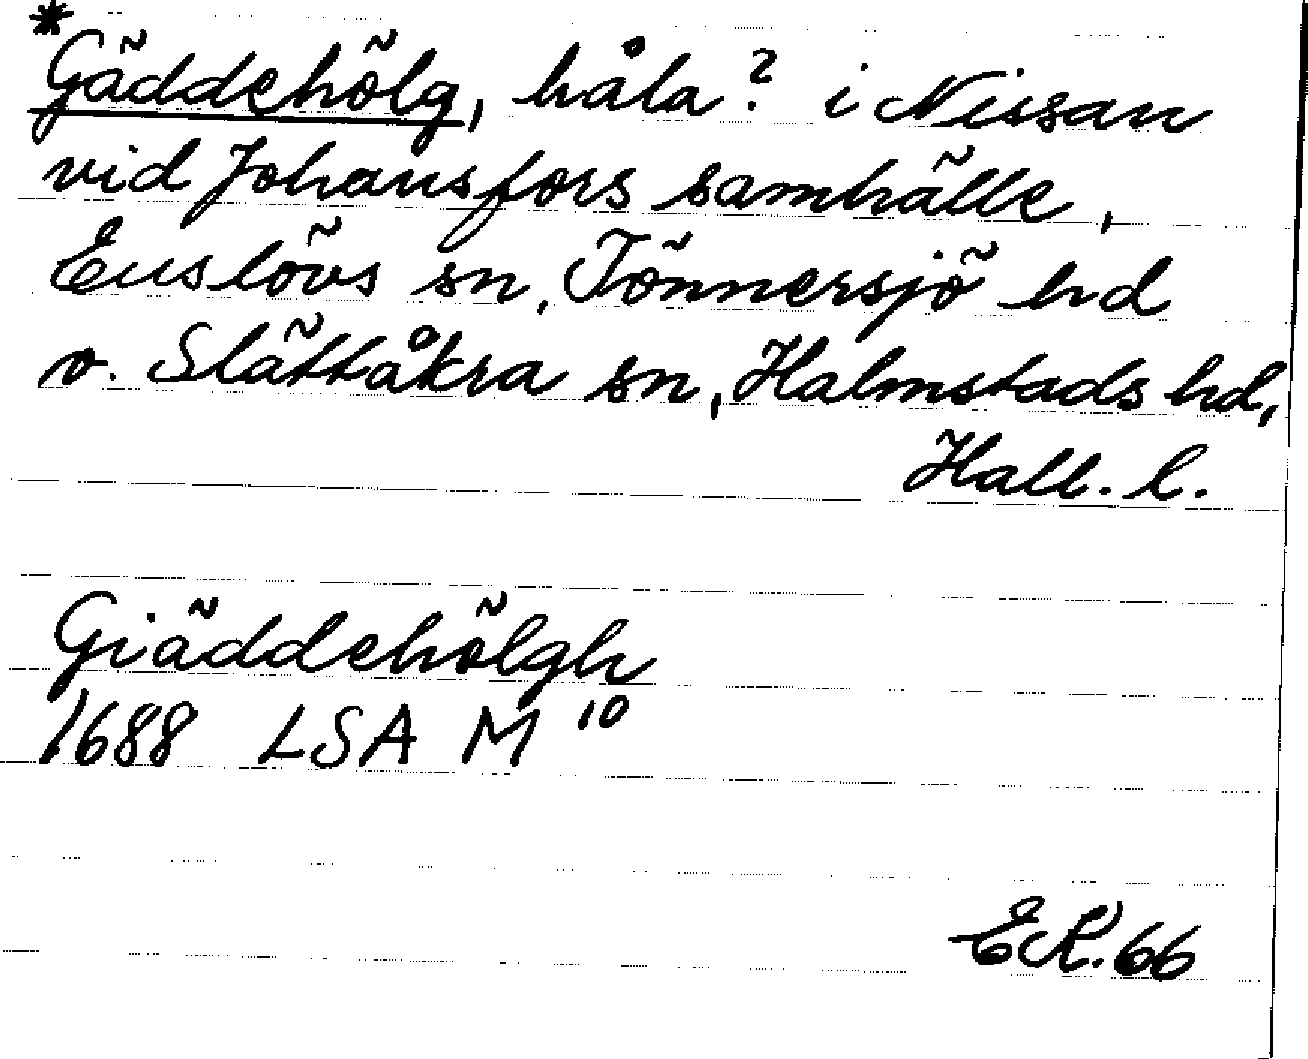 *
Gäddehölg, håla? i Nissan
vid Johansfors samhälle,
Enslövs sn, Tönnersjö hd
o. Slättåkra sn, Halmstads hd,
Hall. l.
Giäddehölgh
1688 LSA M 10
66